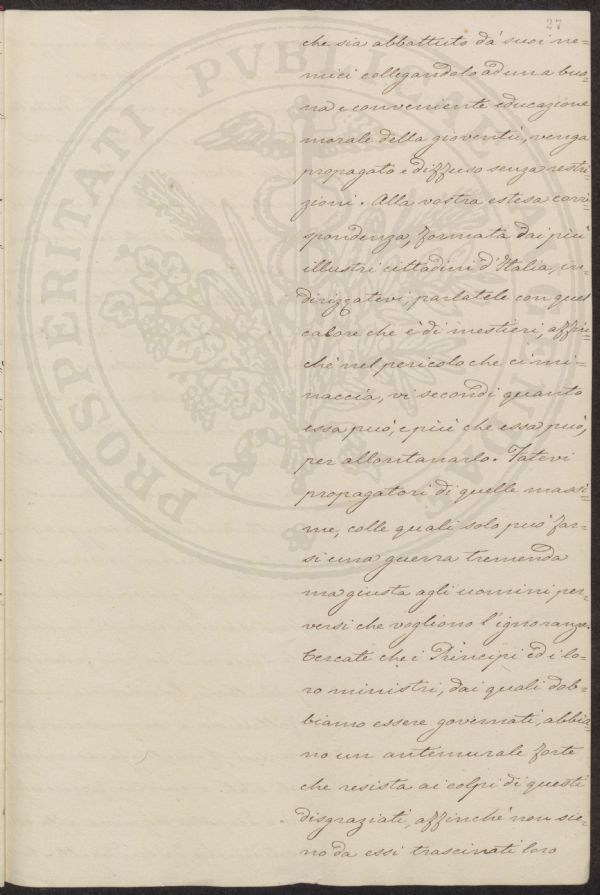 27
che sia abbattuto da' suoi ne=
mici collegandolo ad una buo=
na e conveniente educazione
morale della gioventù, venga
propagato e diffuso senza restri=
zioni. Alla vostra estesa corri=
spondenza formata dai più
illustri cittadini d'Italia, in=
dirizzatevi, parlatele con quel
calore che è di mestieri, affin=
chè nel pericolo che ci mi=
naccia, vi secondi quanto
essa può, e più che essa può,
per allontanarlo. Fatevi
propagatori di quelle massi=
me, colle quali solo può far=
si una guerra tremenda
ma giusta agli uomini per=
versi che vogliono l'ignoranza.
Cercate che i Principi ed i lo=
ro ministri, dai quali dob=
biamo essere governati, abbia=
no un antemurale forte
che resista ai colpi di questi
disgraziati, affinchè non sie=
no da essi trascinati loro
PROSPERITATI PVBLICAE AVGENDAE